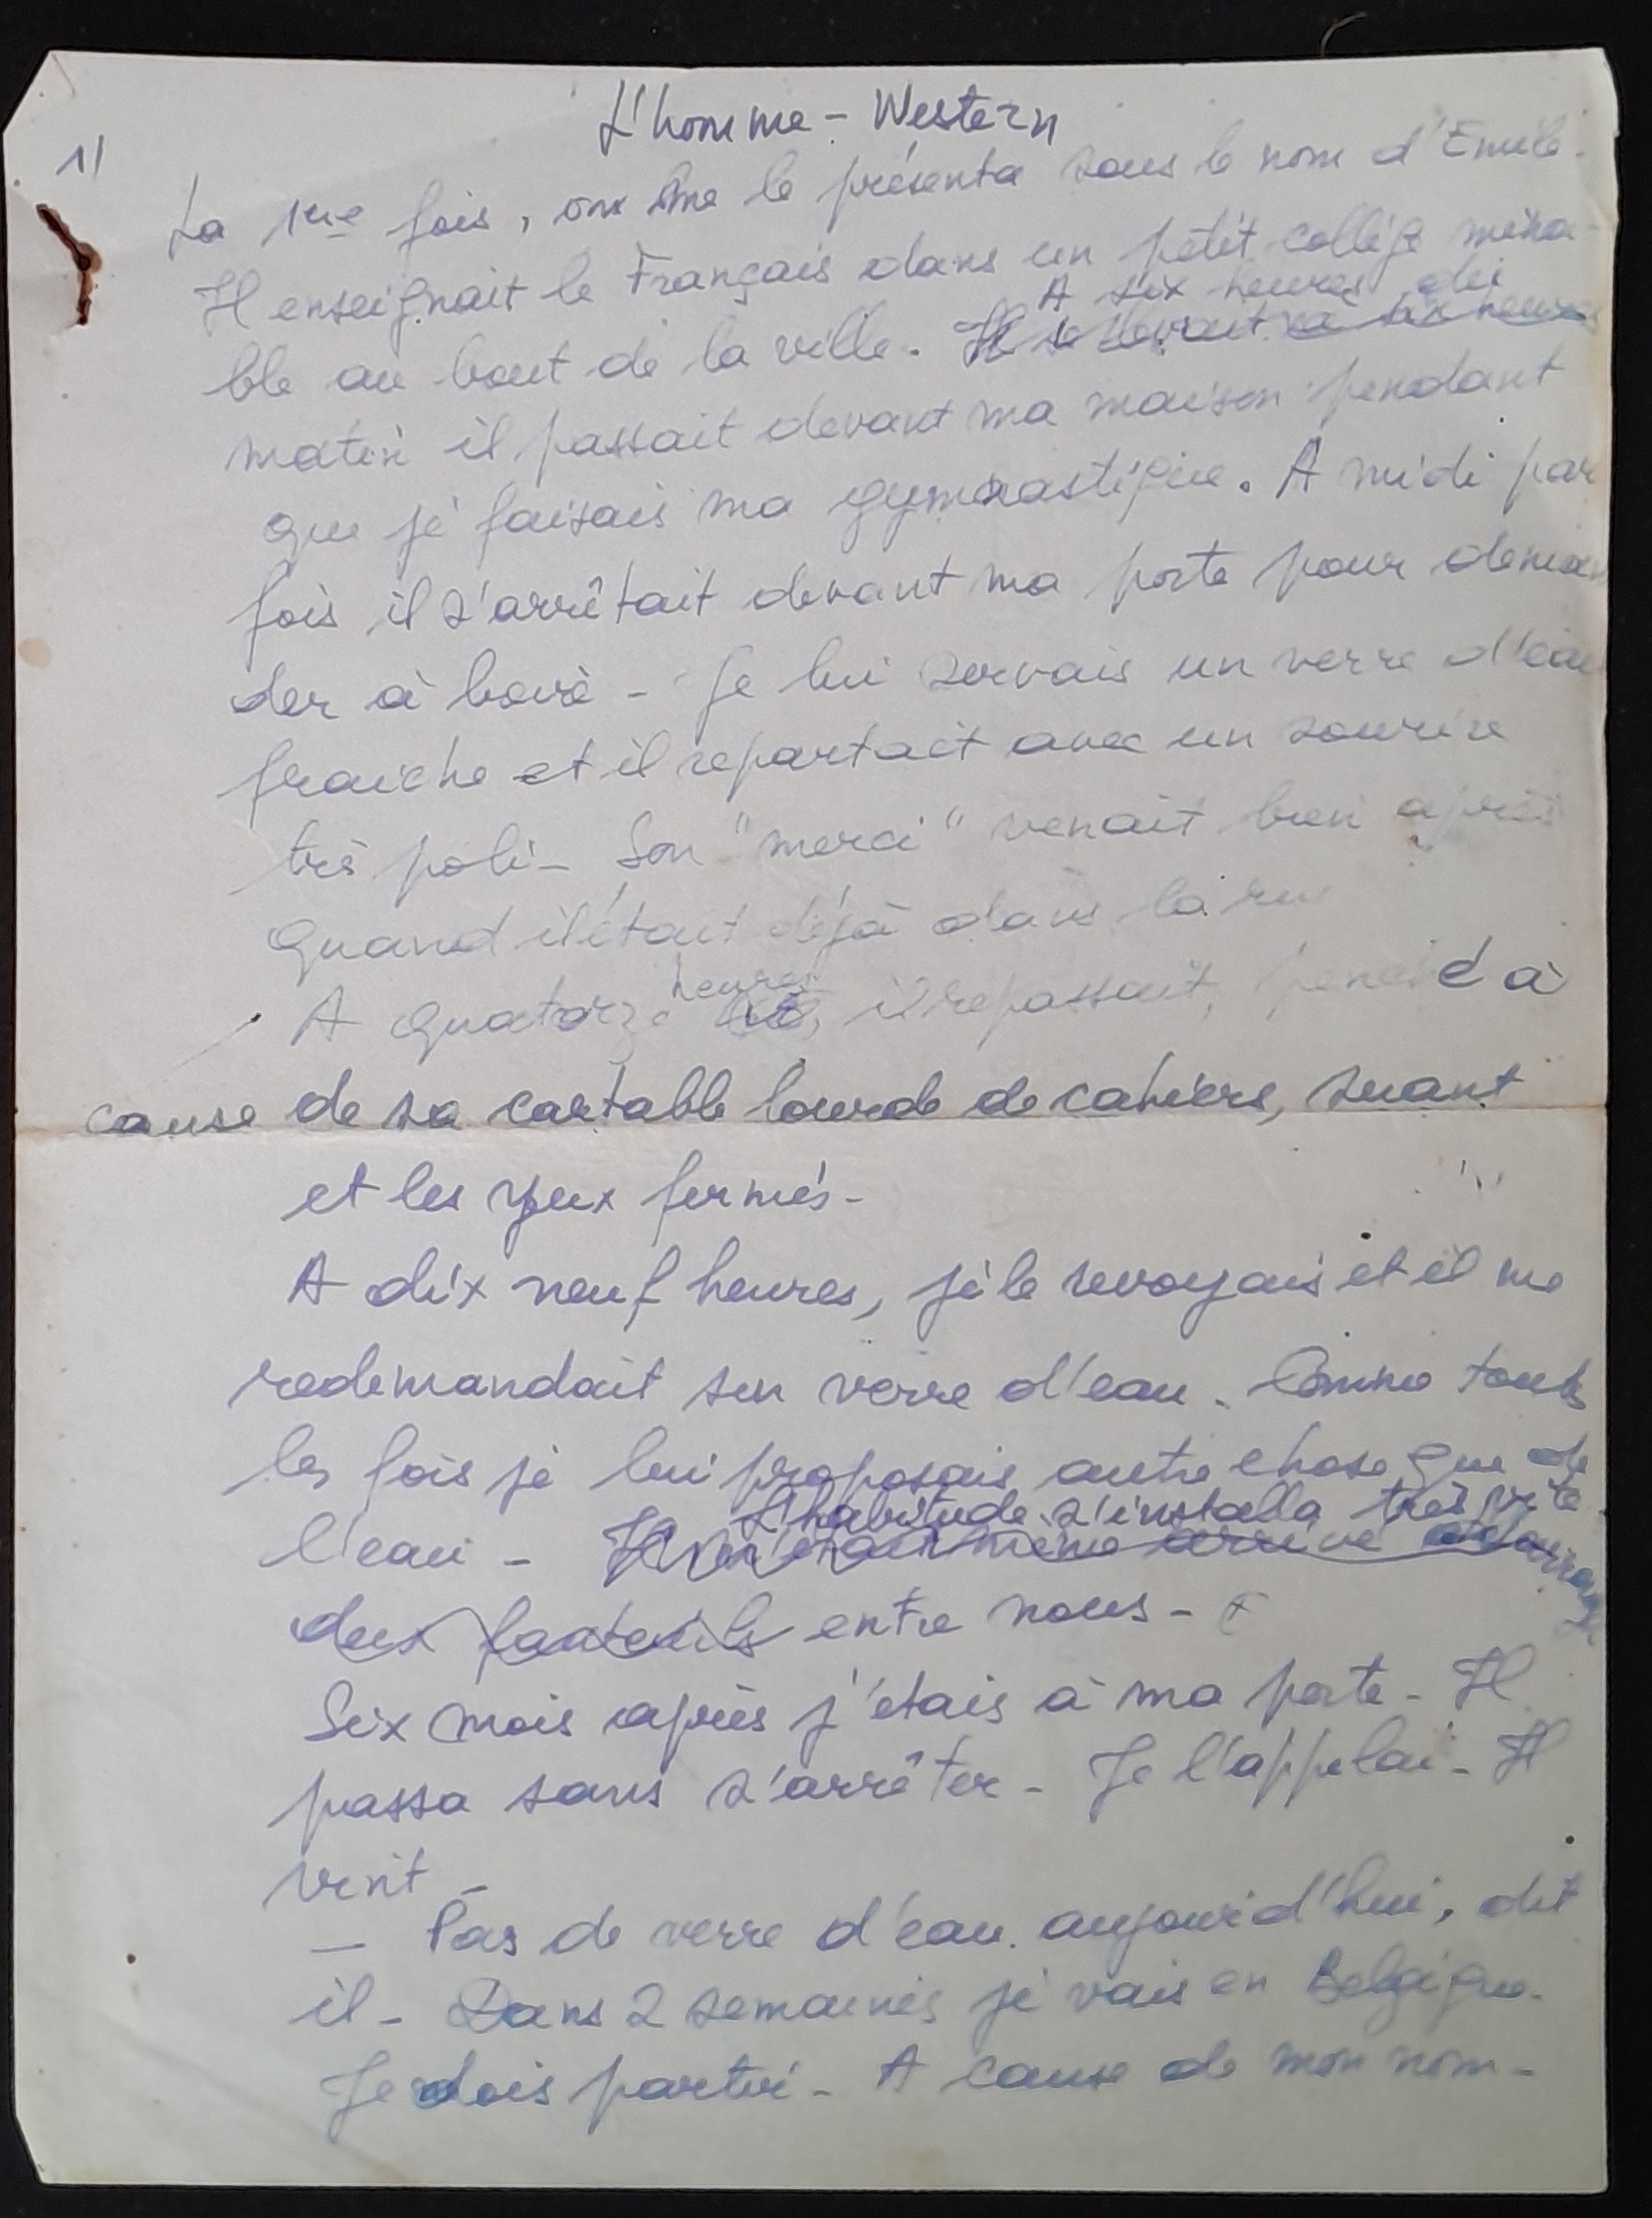 L'homme - Western
1/
La 1ère fois, on me le présenta sous le nom d'Emile.
Il enseignait le Français dans un petit collège mina-
A six heures du
ble au bout de la ville. Il se levait à six heures
matin il passait devant ma maison pendant
que je faisais ma gymnastique. A midi par
fois il s'arrêtait devant ma porte pour deman
der à boire - Je lui servais un verre d'eau
fraiche et il repartait avec un sourire
très poli - Son "merci" venait bien après
quand il était déjà dans la rue
heures
A quatorze, il repassait, penché à
cause de sa cartable lourde de cahiers, suant
et les yeux fermés -
A dix neuf heures, je le revoyais et il me
redemandait son verre d'eau. Comme toutes
les fois je lui proposais autre chose que de
L'habitude s'installa très vite
l'eau - Il m'était même arrivé d'arranger
deux fauteuils entre nous -
Six mois après j'étais à ma porte - Il
passa sans s'arrêter - Je l'appelai - Il
vint -
— Pas de verre d'eau aujourd'hui, dit
il - Dans 2 semaines je vais en Belgique.
Je dois partir - A cause de mon nom -